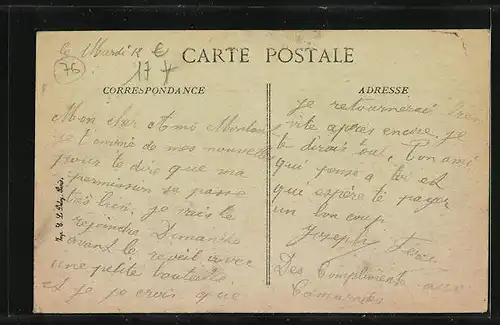 le Mardi 12
76
17
CARTE POSTALE
CORRESPONDANCE
ADRESSE
Mon cher Ami
je t'envoie de mes nouvelles
pour te dire que ma
permission se passe
très bien. je vais te
rejoindre Dimanche
avant le reveil avec
une petite bouteille
et je crois que
je retournerai bien
vite apres encore je
te dirais tout. Ton ami
qui pense a toi et
qui espère te payer
un bon coup
Joseph
Des Compliments aux
Camarades